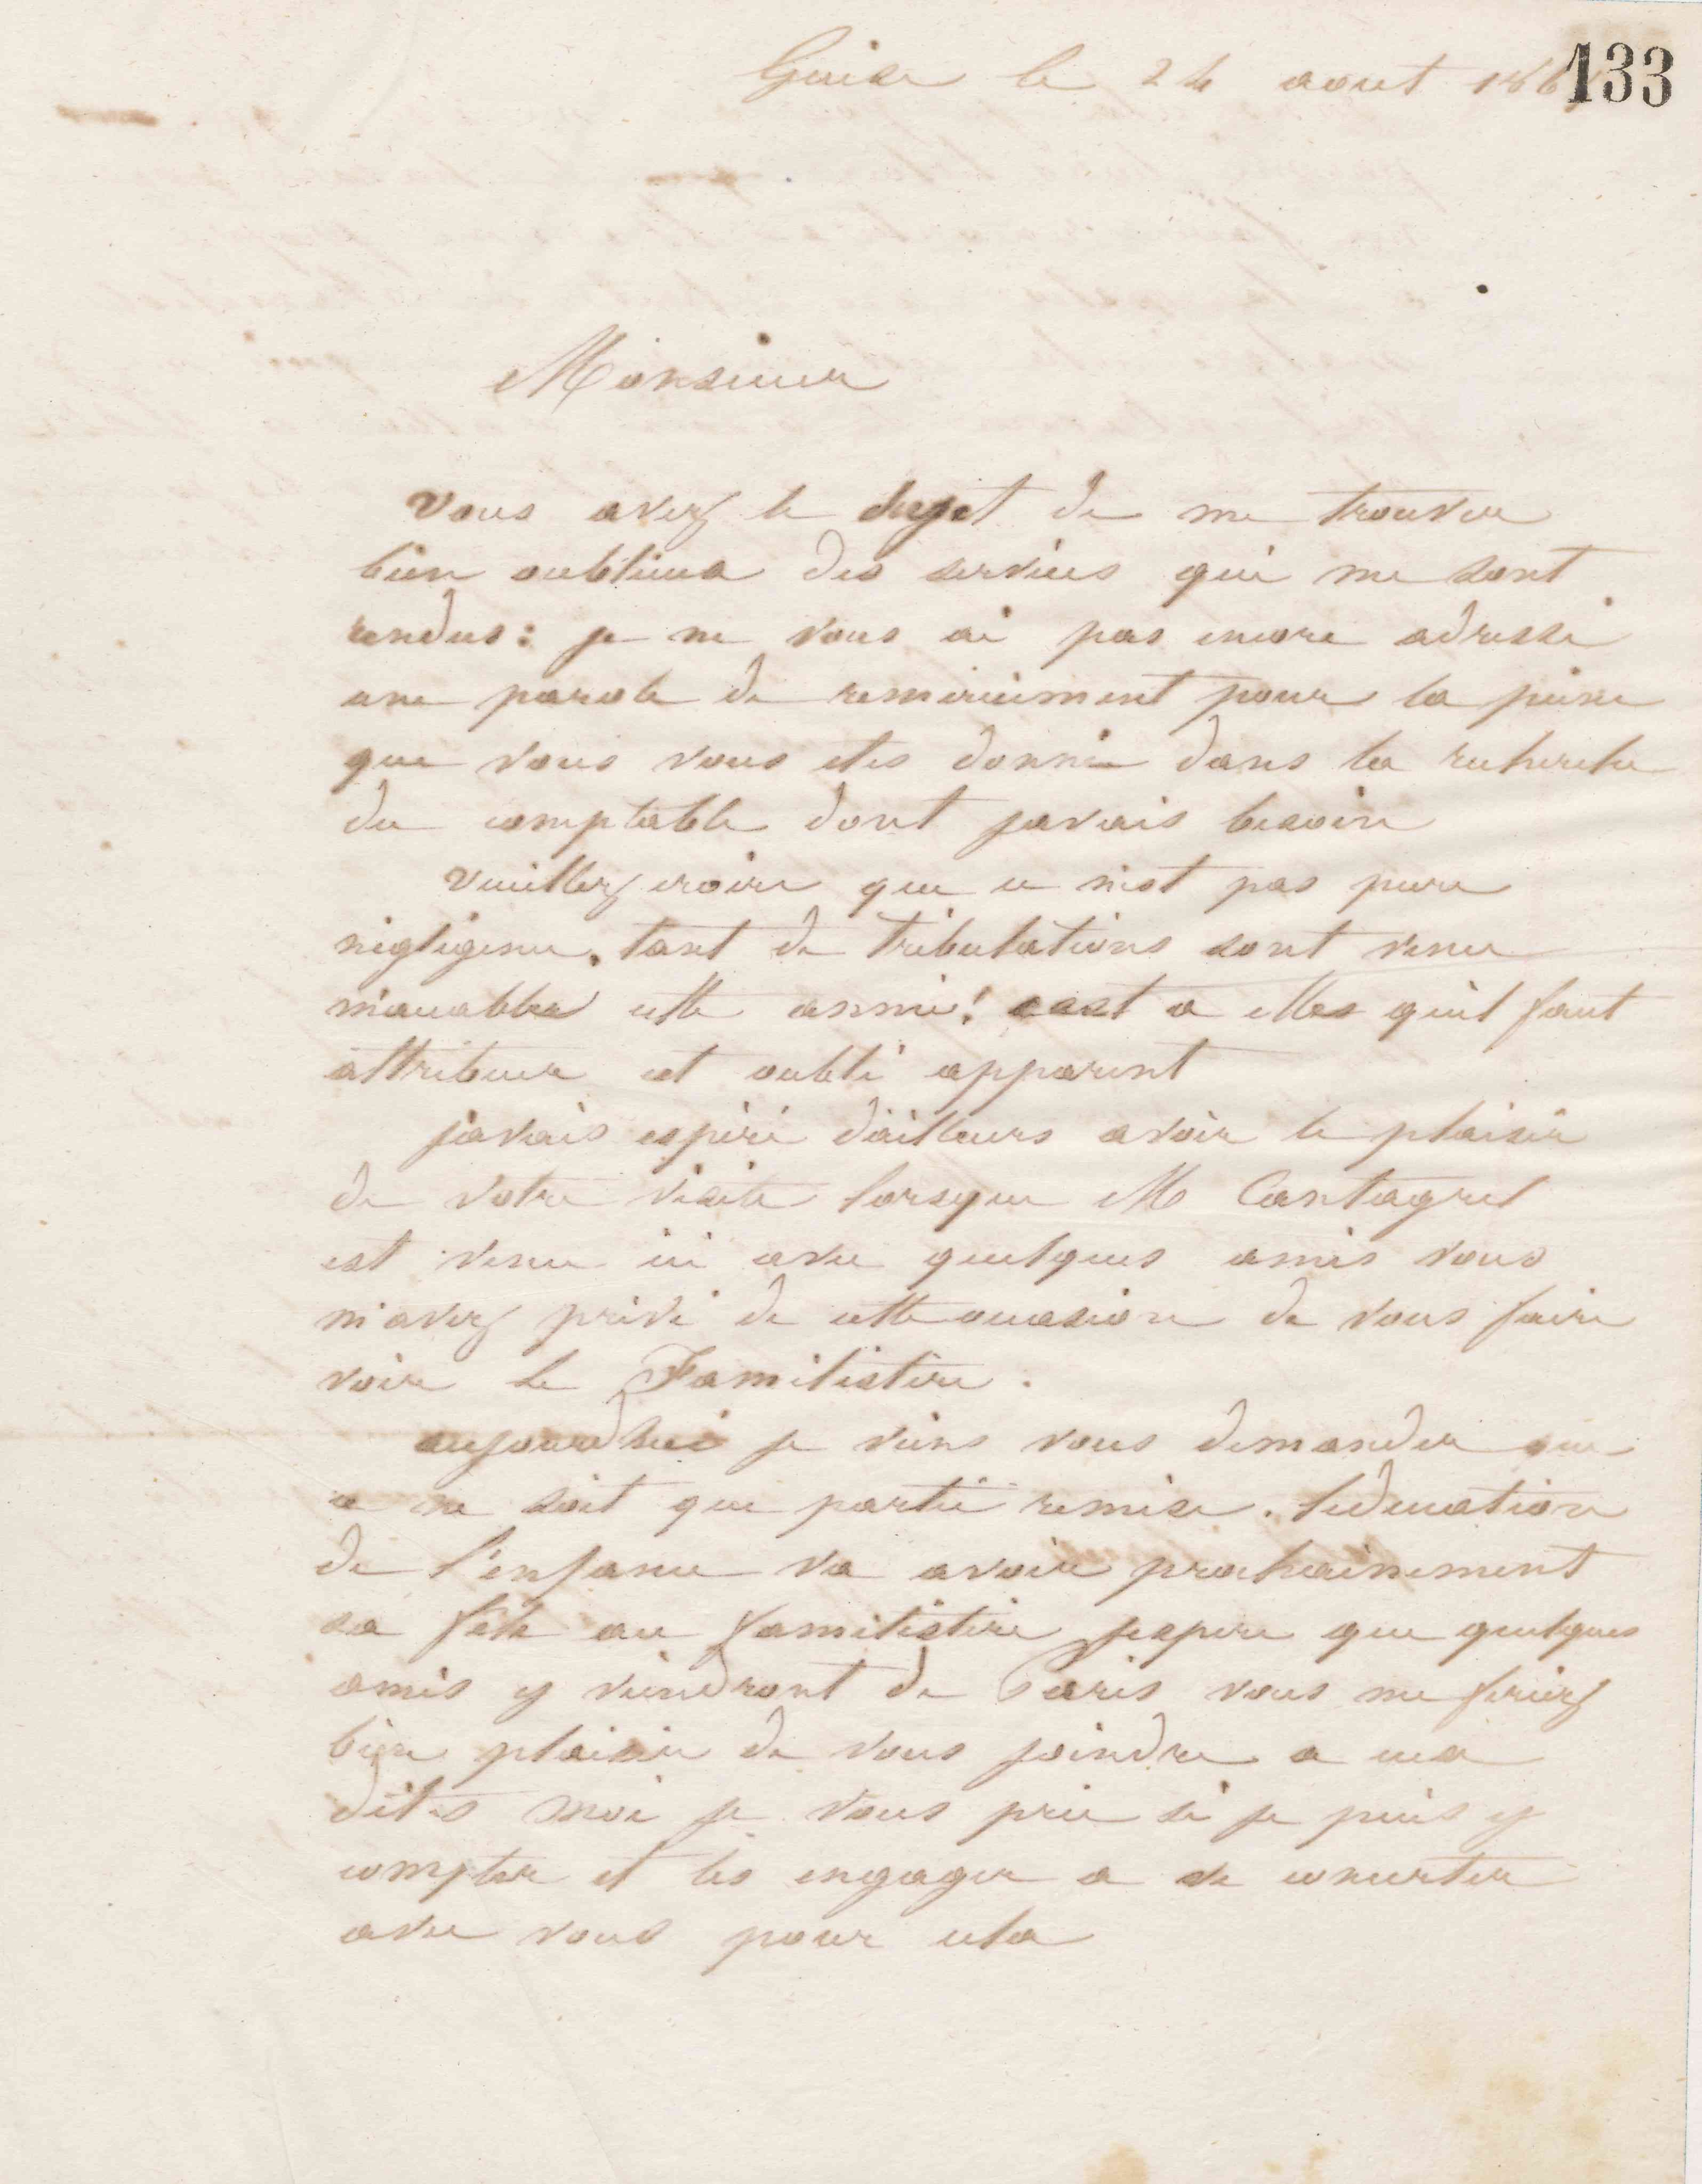 Guise le 24 aout 186
133
Monsieur
vous avez le de me trouver
bien oublieux des services qui me sont
rendus : je ne vous ai pas encore adressé
une parole de remerciement pour la peine
que vous vous etes donnée dans la recherche
du comptable dont javais besoin
veuillez croire que ce n'est pas pure
négligence. tant de tribulations sont venu
m'accabler cette année ! cest a elles qu'il faut
attribuer cet oubli apparent
j'avais espéré d'ailleurs avoir le plaisir
de votre visite lorsque M Cantagrel
est venu ici avec quelques amis vous
m'avez privé de cette occasion de vous faire
voir le Familistère.
aujourdhui je viens vous demander que
ce ne soit que partie remise. leducation
de l'enfance va avoir prochainement
sa fête au familistère jespere que quelques
amis y viendront de Paris vous me feriez
bien plaisir de vous joindre a eux
dites moi je vous prie si je puis y
compter et les engager a se concerter
avec vous pour cela